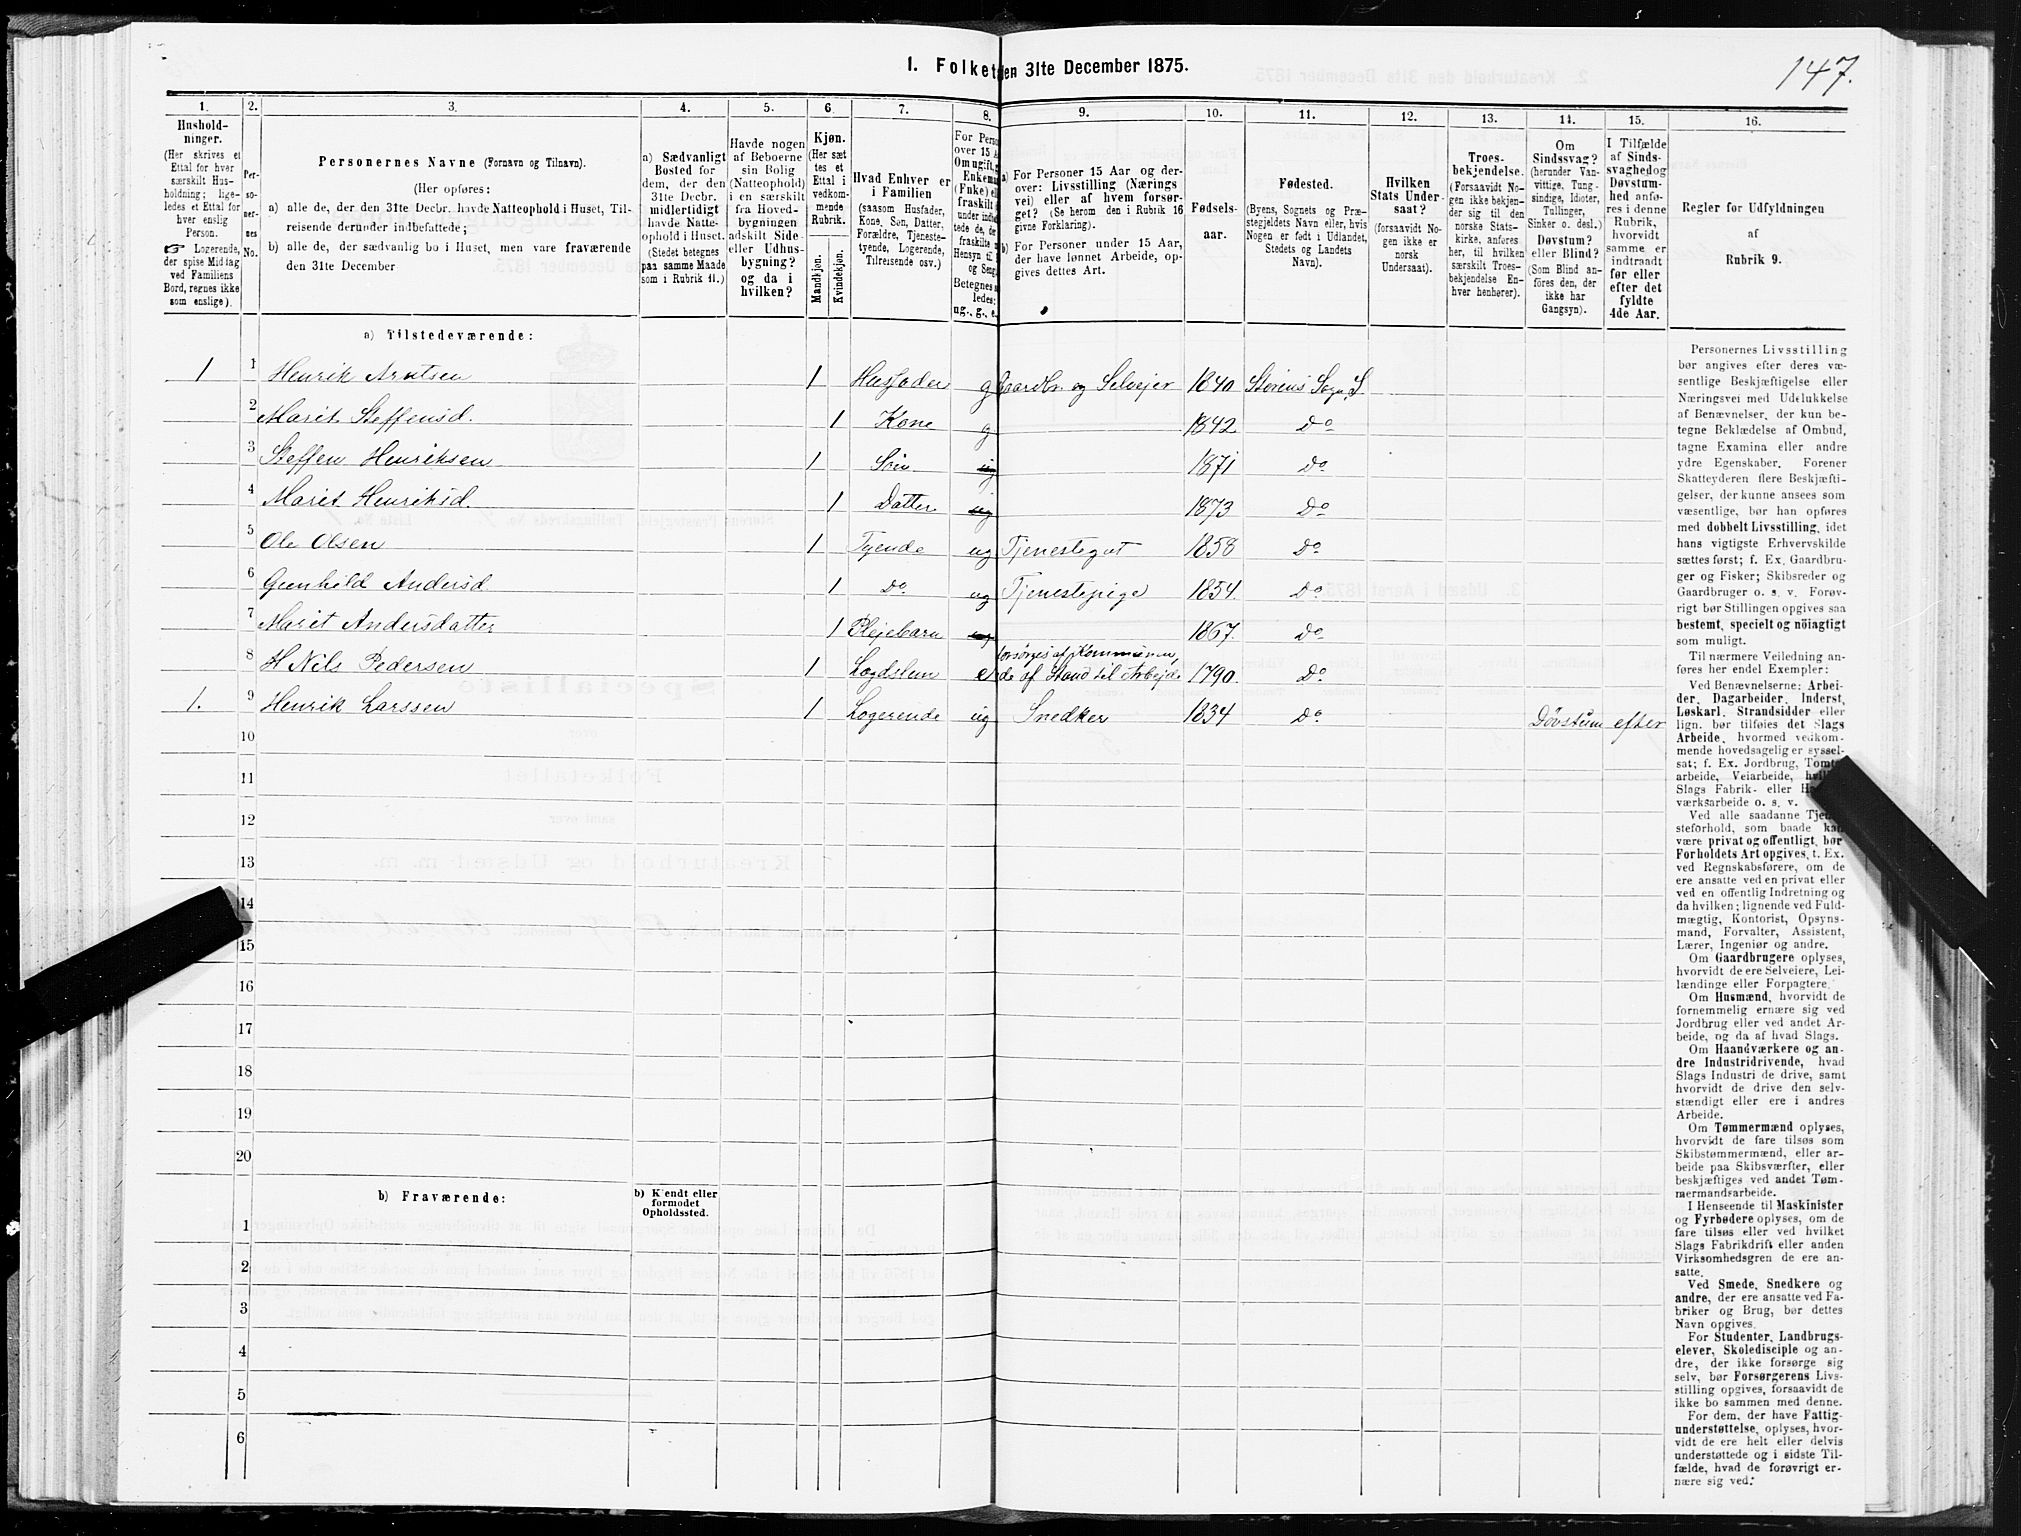 1. Folket den 31te December 1875.
147.
1. 2. 3. 4. 5. 6. 7. 8. 9. 10. 11. 12. 13. 14. 15. 16.
Hushold-
ninger.
(Her skrives et
Ettal for hver
særskilt Hus-
holdning; lige-
ledes et Ettal for
hver enslig
Person.
☞ Logerende,
der spise Middag
ved Familiens
Bord, regnes ikke
som enslige).
Per-
so-
ner-
nes
No.
Personernes Navne (Fornavn og Tilnavn).
(Her opføres:
a) alle de, der den 31te Decbr. havde Natteophold i Huset, Til-
reisende derunder indbefattede;
b) alle de, der sædvanlig bo i Huset, men vare fraværende
den 31te December
a) Sædvanligt
Bosted for
dem, der den
31te Decbr.
midlertidigt
havde Natte-
ophold i Huset.
(Stedet betegnes
paa samme Maade
som i Rubrik 11.)
Havde nogen
af Beboerne
sin Bolig
(Natteophold)
i en særskilt
fra Hoved-
bygningen
adskilt Side-
eller Udhus-
bygning?
og da i
hvilken?
Kjøn.
(Her sæt
tes et
Ettal i
vedkom-
mende
Rubrik.
Mandkjøn.
Kvindekjøn.
Hvad Enhver er
i Familien
(saasom Husfader,
Kone, Søn, Datter,
Forældre, Tjeneste-
tyende, Logerende,
Tilreisende osv.)
For Pers
over 15 A
Om ugift, g
Enkema
(Fnke) e
fraskilt
under indbe
tede de, der
fraskilte
Hensyn til
og Seng
Betegnes s
ledes:
ug., g., e.
a) For Personer 15 Aar og der-
over: Livsstilling (Nærings
vei) eller af hvem forsør-
get? (Se herom den i Rubrik 16
givne Forklaring).
b) For Personer under 15 Aar,
der have lønnet Arbeide, op-
gives dettes Art.
Fødsels-
aar.
Fødested.
(Byens, Sognets og Præ-
stegjeldets Navn eller, hvis
Nogen er født i Udlandet,
Stedets og Landets
Navn).
Hvilken
Stats Under-
saat?
(forsaavidt No-
gen ikke er
norsk
Undersaat).
Troes-
bekjendelse.
(Forsaavidt No-
gen ikke bekjen-
der sig til den
norske Stats-
kirke, anføres
her, til hvilken
særskilt Troes-
bekjendelse En-
hver henhører).
Om
Sindssvag?
(herunder Van-
vittige, Tung-
sindige, Idioter,
Tullinger,
Sinker o. desl.)
Døvstum?
eller Blind?
(Som Blind an-
føres den, der
ikke har
Gangsyn).
I Tilfælde
af Sinds-
svaghed og
Døvstum-
hed anfø-
res i denne
Rubrik,
hvorvidt
samme er
indtraadt
før eller
efter det
fyldte
4de Aar.
Regler for Udfyldningen
af
Rubrik 9.
a) Tilstedeværende:
1 1 Henrik Arntsen 1 Husfader g Gaardbr. og Selvejer 1840 Størens Sogn
2 Marit Steffensd. 1 Kone g 1842 Do
3 Steffen Henriksen 1 Søn ug 1871 Do
4 Marit Henriksd. 1 Datter ug 1873 Do
5 Ole Olsen 1 Tyende ug Tjenestegut 1858 Do
6 Gunhild Andersd 1 Do ug Tjenestepige 1854. Do
7 Marit Andersdatter 1 Plejebarn ug 1867. Do
forsørges af Kommunen,
8 Nils Pedersen 1 Lægdslem e ude af Stand til Arbejde 1790. Do
1. 9 Henrik Larssen 1 Logerende ug Snedker 1834 Do Døvstum efter
10
11
12
13
14
15
16
17
18
19
20
b) Fraværende:
b) Kjendt eller
formodet
Opholdssted.
1
2
3
4
5
6
Personernes Livsstilling
bør angives efter deres væ-
sentlige Beskjæftigelse eller
Næringsvei med Udelukkelse
af Benævnelser, der kun be-
tegne Beklædelse af Ombud,
tagne Examina eller andre
ydre Egenskaber. Forener
Skatteyderen flere Beskjæfti-
gelser, der kunne ansees som
væsentlige, bør han opføres
med dobbelt Livsstilling, idet
hans vigtigste Erhvervskilde
sættes først; f. Ex. Gaardbru-
ger og Fisker; Skibsreder og
Gaardbruger o. s. v. Forøv-
rigt bør Stillingen opgives saa
bestemt, specielt og nöiagtigt
som muligt.
Til nærmere Veiledning an-
føres her endel Exempler:
Ved Benævnelserne: Arbei-
der, Dagarbeider, Inderst,
Løskarl, Strandsidder eller
lign. bør tilføies det Slags
Arbeide, hvormed vedkom-
mende hovedsagelig er syssel-
sat; f. Ex. Jordbrug, Tomt-
arbeide, Veiarbeide, hvilket
Slags Fabrik- eller Haand-
værksarbeide o. s. v.
Ved alle saadanne Tjene-
steforhold, som baade kan
være privat og offentligt, bør
Forholdets Art opgives, t. Ex.
ved Regnskabsførere, om de
ere ansatte ved en privat eller
ved en offentlig Indretning og
da hvilken; lignende ved Fuld-
mægtig, Kontorist, Opsyns-
mand, Forvalter, Assistent,
Lærer, Ingeniør og andre.
Om Gaardbrugere oplyses,
hvorvidt de ere Selveiere, Lei-
lændinge eller Forpagtere.
Om Husmænd, hvorvidt de
fornemmelig ernære sig ved
Jordbrug eller ved andet Ar-
beide, og da af hvad Slags.
Om Haandværkere og an-
dre Industridrivende, hvad
Slags Industri de drive, samt
hvorvidt de drive den selv-
stændigt eller ere i andres
Arbeide.
Om Tømmermænd oplyses,
hvorvidt de fare tilsøs som
Skibstømmermænd, eller ar-
beide paa Skibsværfter, eller
beskjæftiges ved andet Tøm-
mermandsarbeide.
I Henseende til Maskinister
og Fyrbødere oplyses, om de
fare tilsøs eller ved hvilket
Slags Fabrikdrift eller anden
Virksomhedsgren de ere an-
satte.
Ved Smede, Snedkere og
andre, der ere ansatte ved Fa-
briker og Brug, bør dettes
Navn opgives.
For Studenter, Landbrugs-
elever, Skoledisciple og an-
dre, der ikke forsørge sig
selv, bør Forsørgerens Livs-
stilling opgives, forsaavidt de
ikke bo sammen med denne.
For dem, der have Fattig-
understøttelse, oplyses, hvor-
vidt de ere helt eller delvis
understøttede og i sidste Til-
fælde, hvad de forøvrigt er-
nære sig ved.